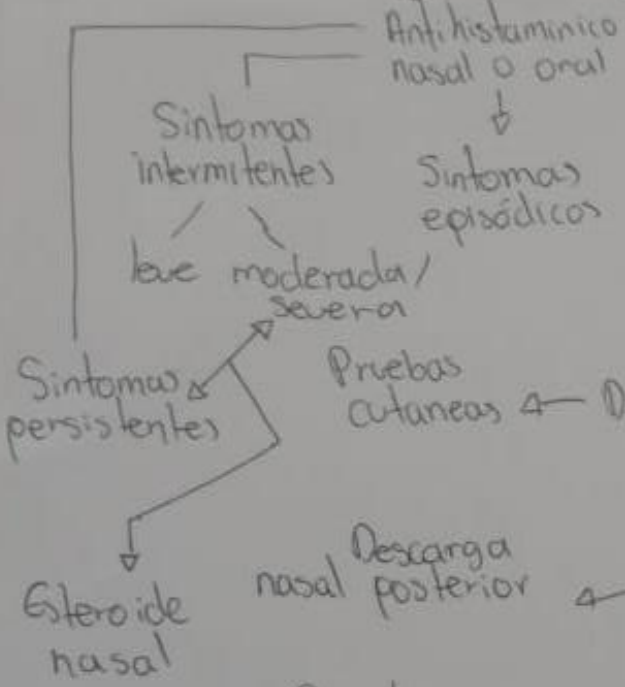 Antihistaminico
nasal o oral
Sintomas
intermitentes
Sintomas
episódicos
leve moderada/
severa
Sintomas
persistentes
Pruebas
cutaneas
D
Descarga
nasal posterior
Esteroide
nasal